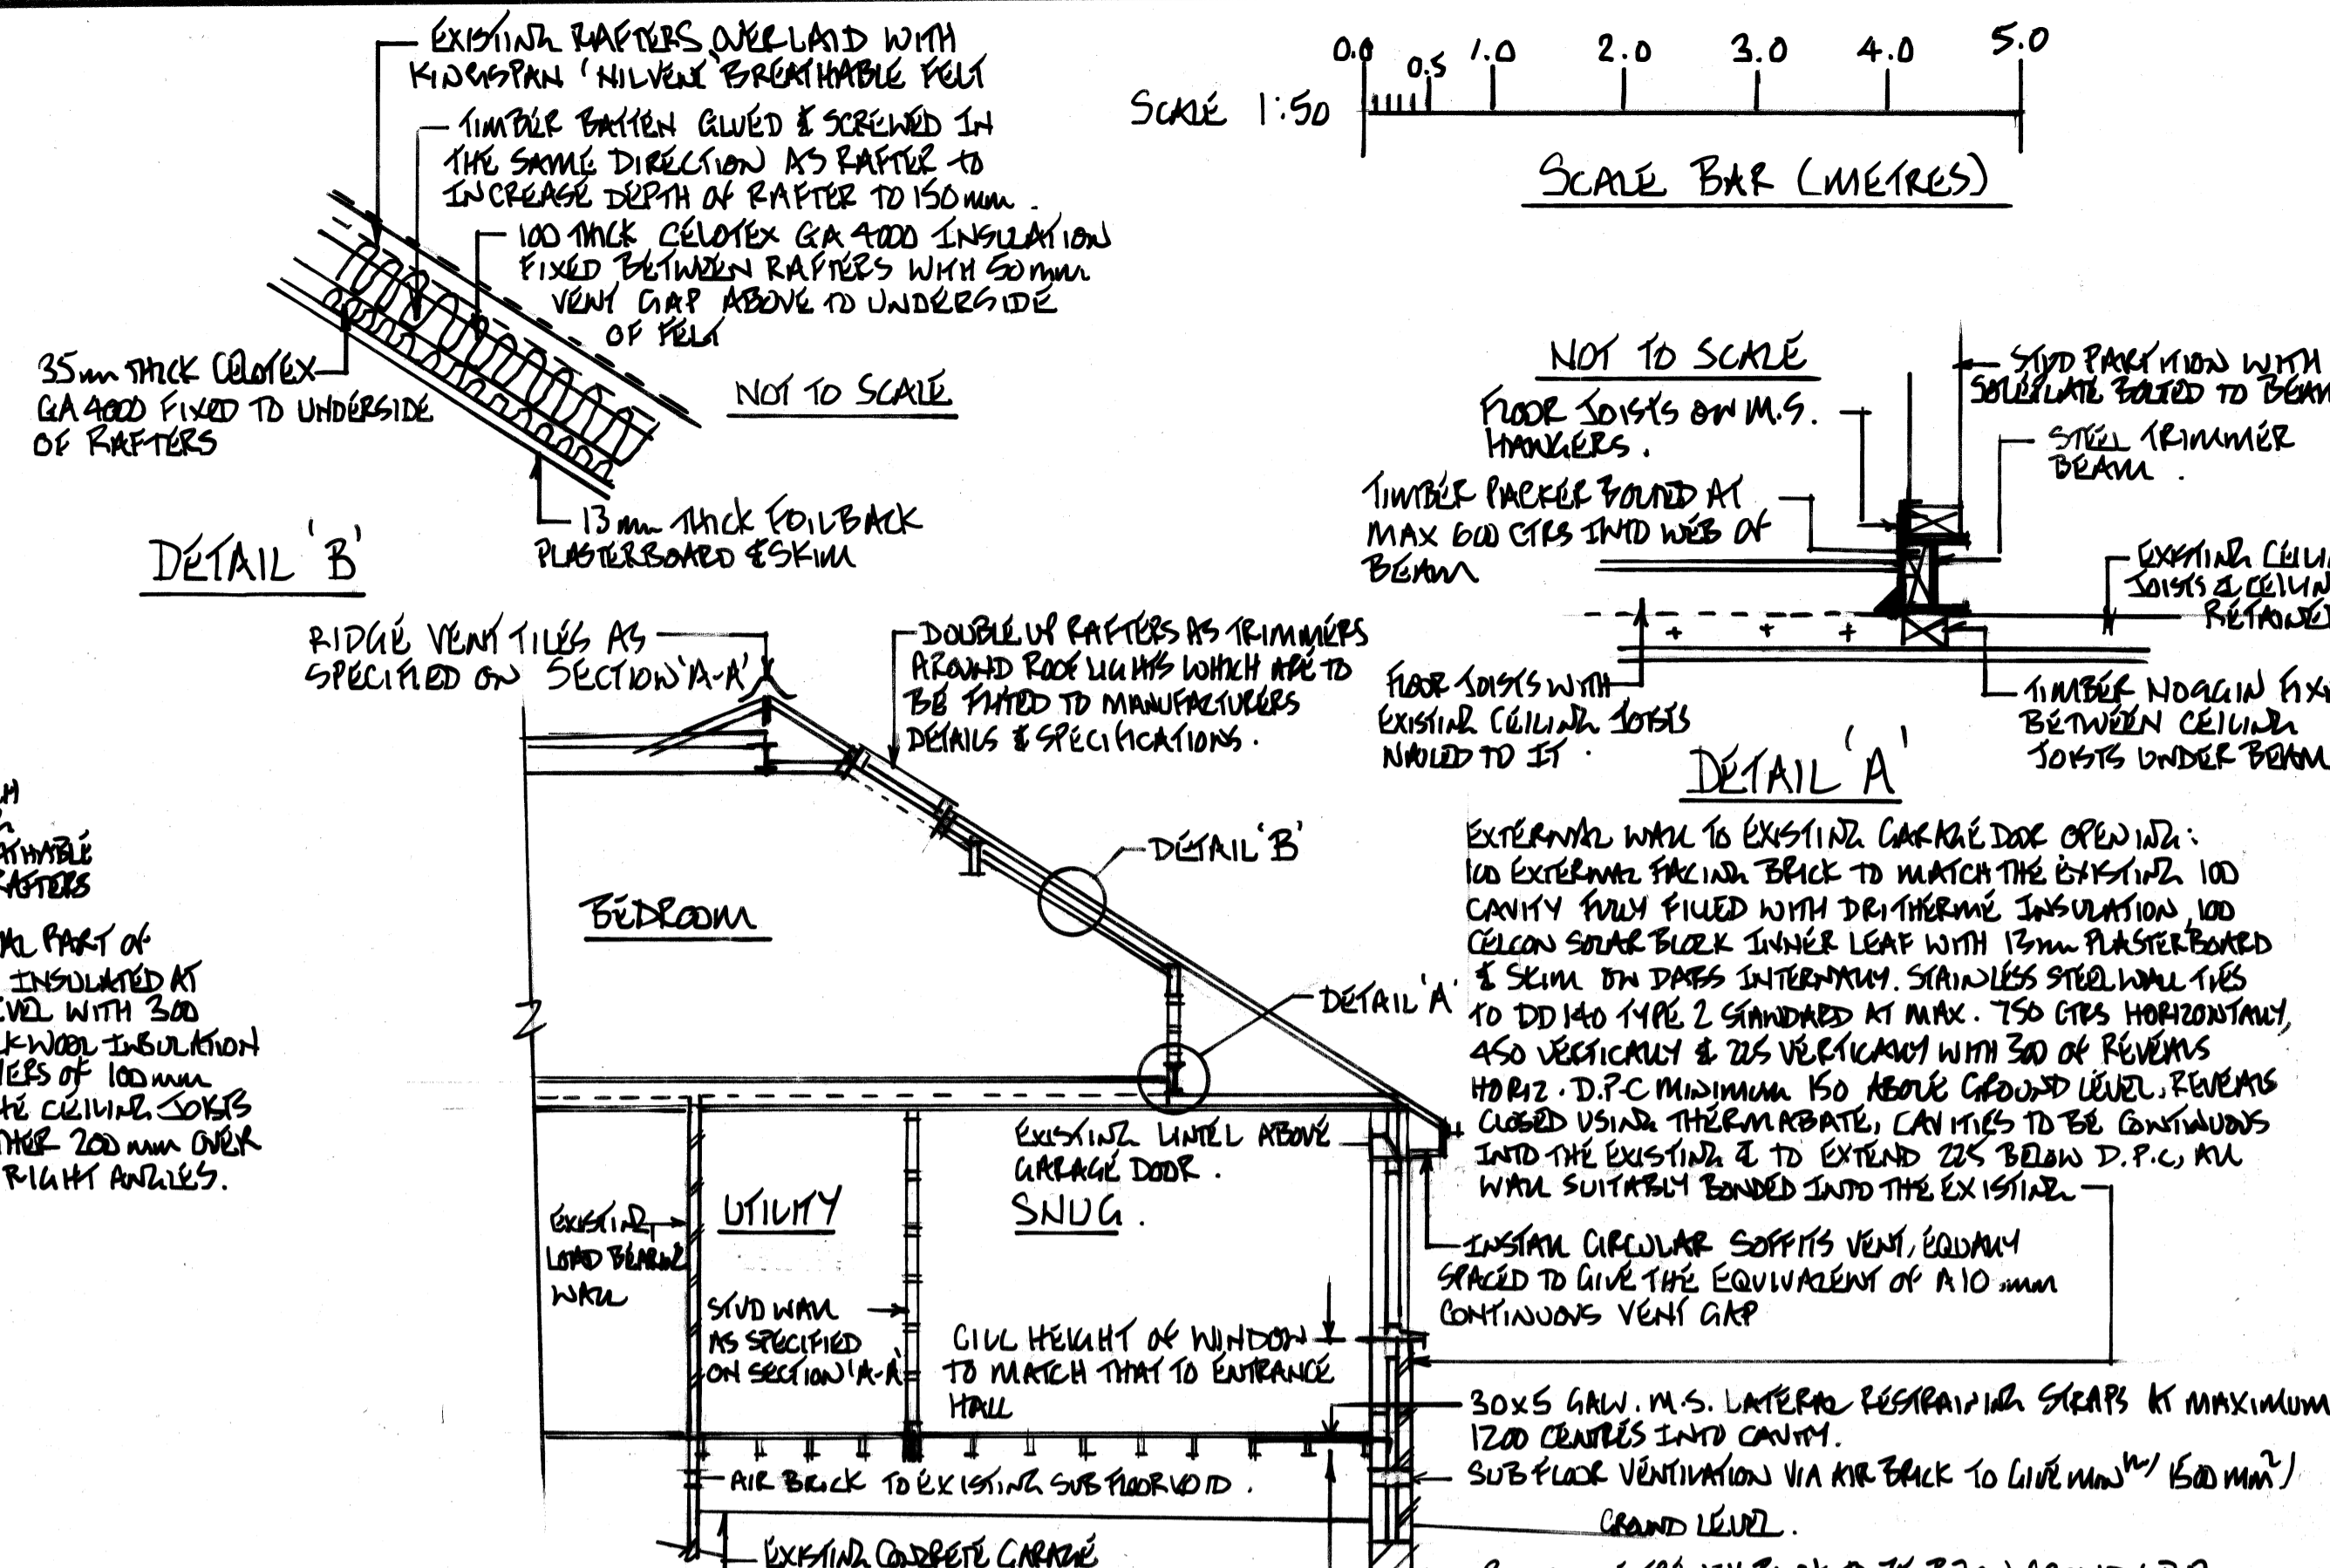 EXISTING RAFTERS OVERLAID WITH
KINGSPAN 'NILVENT' BREATHABLE FELT
TIMBER BATTEN GLUED & SCREWED IN
THE SAME DIRECTION AS RAFTER TO
INCREASE DEPTH OF RAFTER TO 150mm.
100 THICK CELOTEX GA 4000 INSULATION
FIXED BETWEEN RAFTERS WITH 50mm
VENT GAP ABOVE TO UNDERSIDE
OF FELT
35mm THICK CELOTEX
GA 4000 FIXED TO UNDERSIDE
OF RAFTERS
NOT TO SCALE
13mm THICK FOILBACK
PLASTERBOARD & SKIM
DETAIL 'B'
0.0 0.5 1.0 2.0 3.0 4.0 5.0
SCALE 1:50
SCALE BAR (METRES)
NOT TO SCALE
FLOOR JOISTS ON M.S.
HANGERS.
TIMBER PACKER BOLTED AT
MAX 600 CTRS INTO WEB OF
BEAM
STUD PARTITION WITH
SOLEPLATE BOLTED TO BEAM
STEEL TRIMMER
BEAM.
EXISTING CEILIN
JOISTS & CEILIN
RETAINED
FLOOR JOISTS WITH
EXISTING CEILING JOISTS
NAILED TO IT.
TIMBER NOGGIN FIX
BETWEEN CEILING
JOISTS UNDER BEAM
DETAIL 'A'
RIDGE VENT TILES AS
SPECIFIED ON SECTION 'A-A'
DOUBLE UP RAFTERS AS TRIMMERS
AROUND ROOF LIGHTS WHICH ARE TO
BE FITTED TO MANUFACTURERS
DETAILS & SPECIFICATIONS.
ATHABLE
RAFTERS
AL PART OF
INSULATED AT
EVEL WITH 300
KWOOL INSULATION
YERS OF 100mm
HE CEILING JOISTS
THER 200mm OVER
RIGHT ANGLES.
BEDROOM
DETAIL 'B'
DETAIL 'A'
EXTERNAL WALL TO EXISTING GARAGE DOOR OPENING:
100 EXTERNAL FACING BRICK TO MATCH THE EXISTING 100
CAVITY FULLY FILLED WITH DRITHERME INSULATION, 100
CELCON SOLAR BLOCK INNER LEAF WITH 13mm PLASTERBOARD
& SKIM ON DABS INTERNALLY. STAINLESS STEEL WALL TIES
TO DD140 TYPE 2 STANDARD AT MAX. 750 CTRS HORIZONTALLY,
450 VERTICALLY & 225 VERTICALLY WITH 300 OF REVEALS
HORIZ. D.P.C MINIMUM 150 ABOVE GROUND LEVEL, REVEALS
CLOSED USING THERMABATE, CAVITIES TO BE CONTINUOUS
INTO THE EXISTING & TO EXTEND 225 BELOW D.P.C, ALL
WALL SUITABLY BONDED INTO THE EXISTING
EXISTING LINTEL ABOVE
GARAGE DOOR.
SNUG.
UTILITY
EXISTING
LOAD BEARING
WALL
STUD WALL
AS SPECIFIED
ON SECTION 'A-A'
INSTALL CIRCULAR SOFFITS VENT, EQUALLY
SPACED TO GIVE THE EQUIVALENT OF A 10mm
CONTINUOUS VENT GAP
CILL HEIGHT OF WINDOW
TO MATCH THAT TO ENTRANCE
HALL
30x5 GALV. M.S. LATERAL RESTRAINING STRAPS AT MAXIMUM
1200 CENTRES INTO CAVITY.
AIR BRICK TO EXISTING SUBFLOOR VOID.
SUB FLOOR VENTILATION VIA AIR BRICK TO GIVE MIN 1500 mm²/
GROUND LEVEL.
EXISTING CONCRETE GARAGE